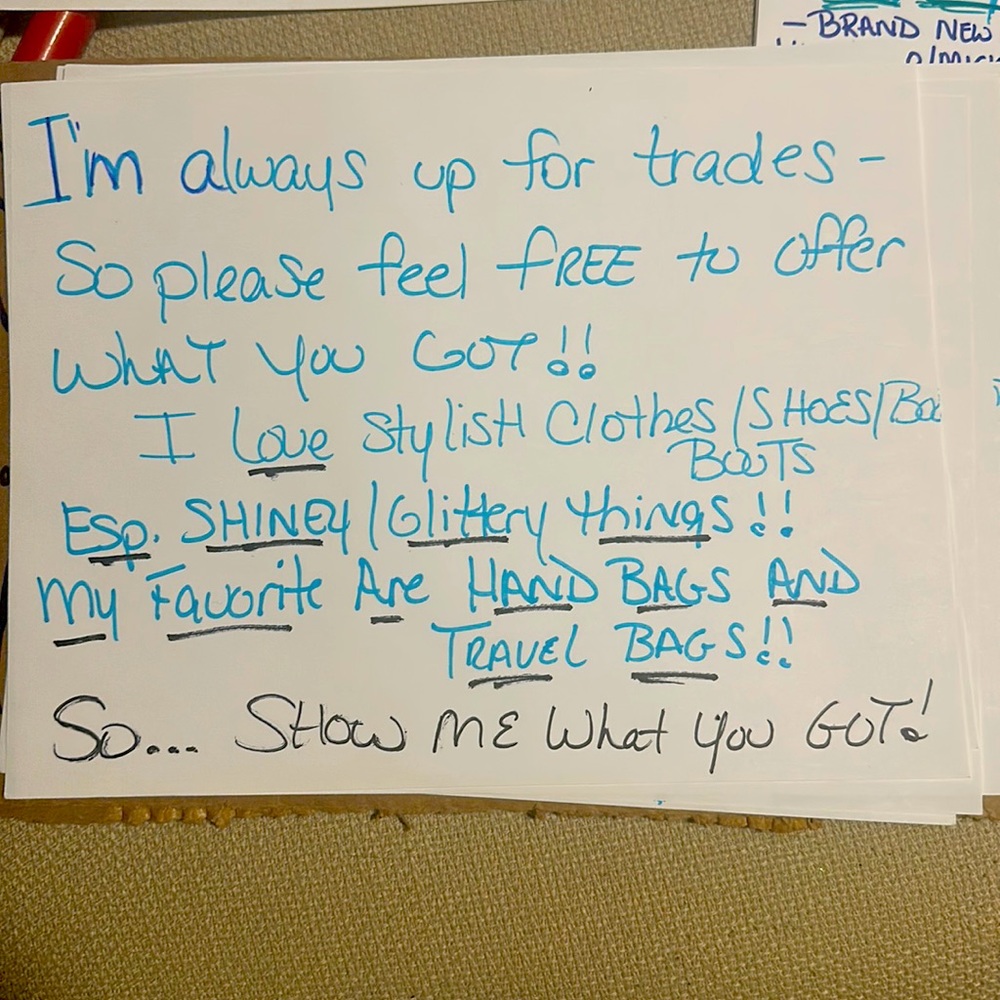 - BRAND NEW
I'm always up for trades -
So please feel FREE to offer
WHAT YOU GOT!!
I Love StyLiSH Clothes/SHOES/
BOOTS
Esp. SHINEY/Glittery things!!
My Favorite Are HAND BAGS AND
TRAVEL BAGS!!
So... SHOW ME What you GOT!